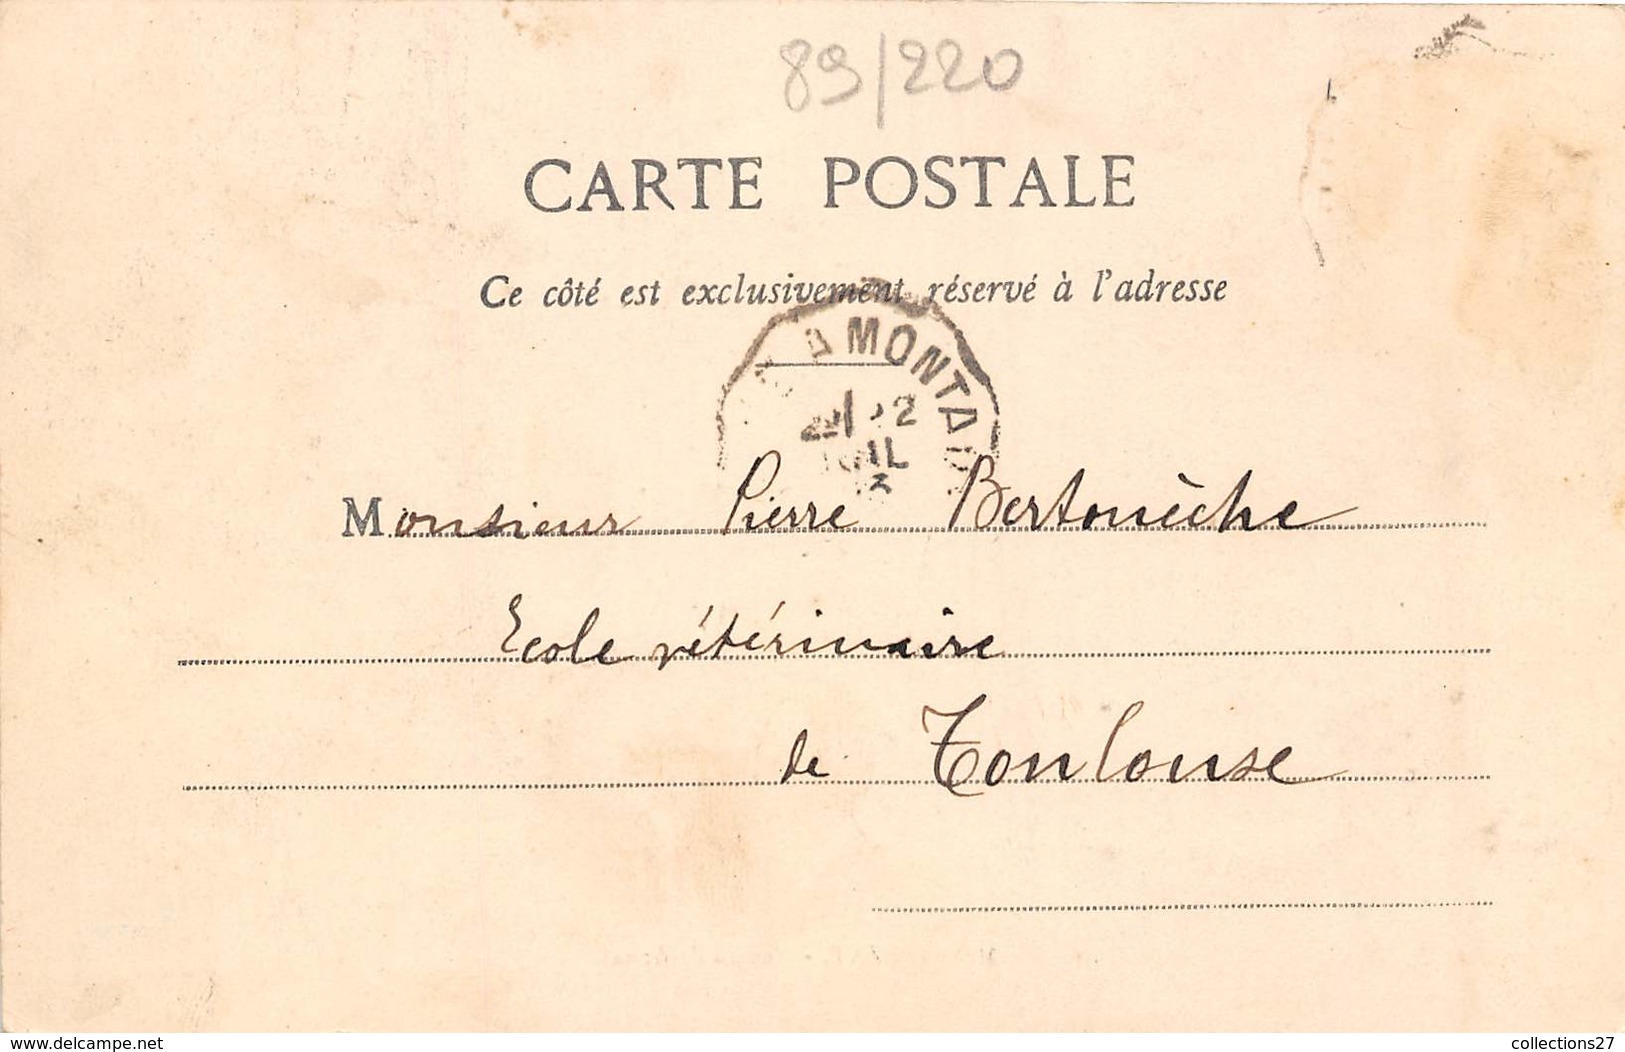 89/220
CARTE POSTALE
Ce côté est exclusivement réservé à l'adresse
A MONTAU
22
IL
3
Monsieur Pierre Bertonèche
Ecole vétérinaire
de Toulouse
www.delcampe.net
collections27